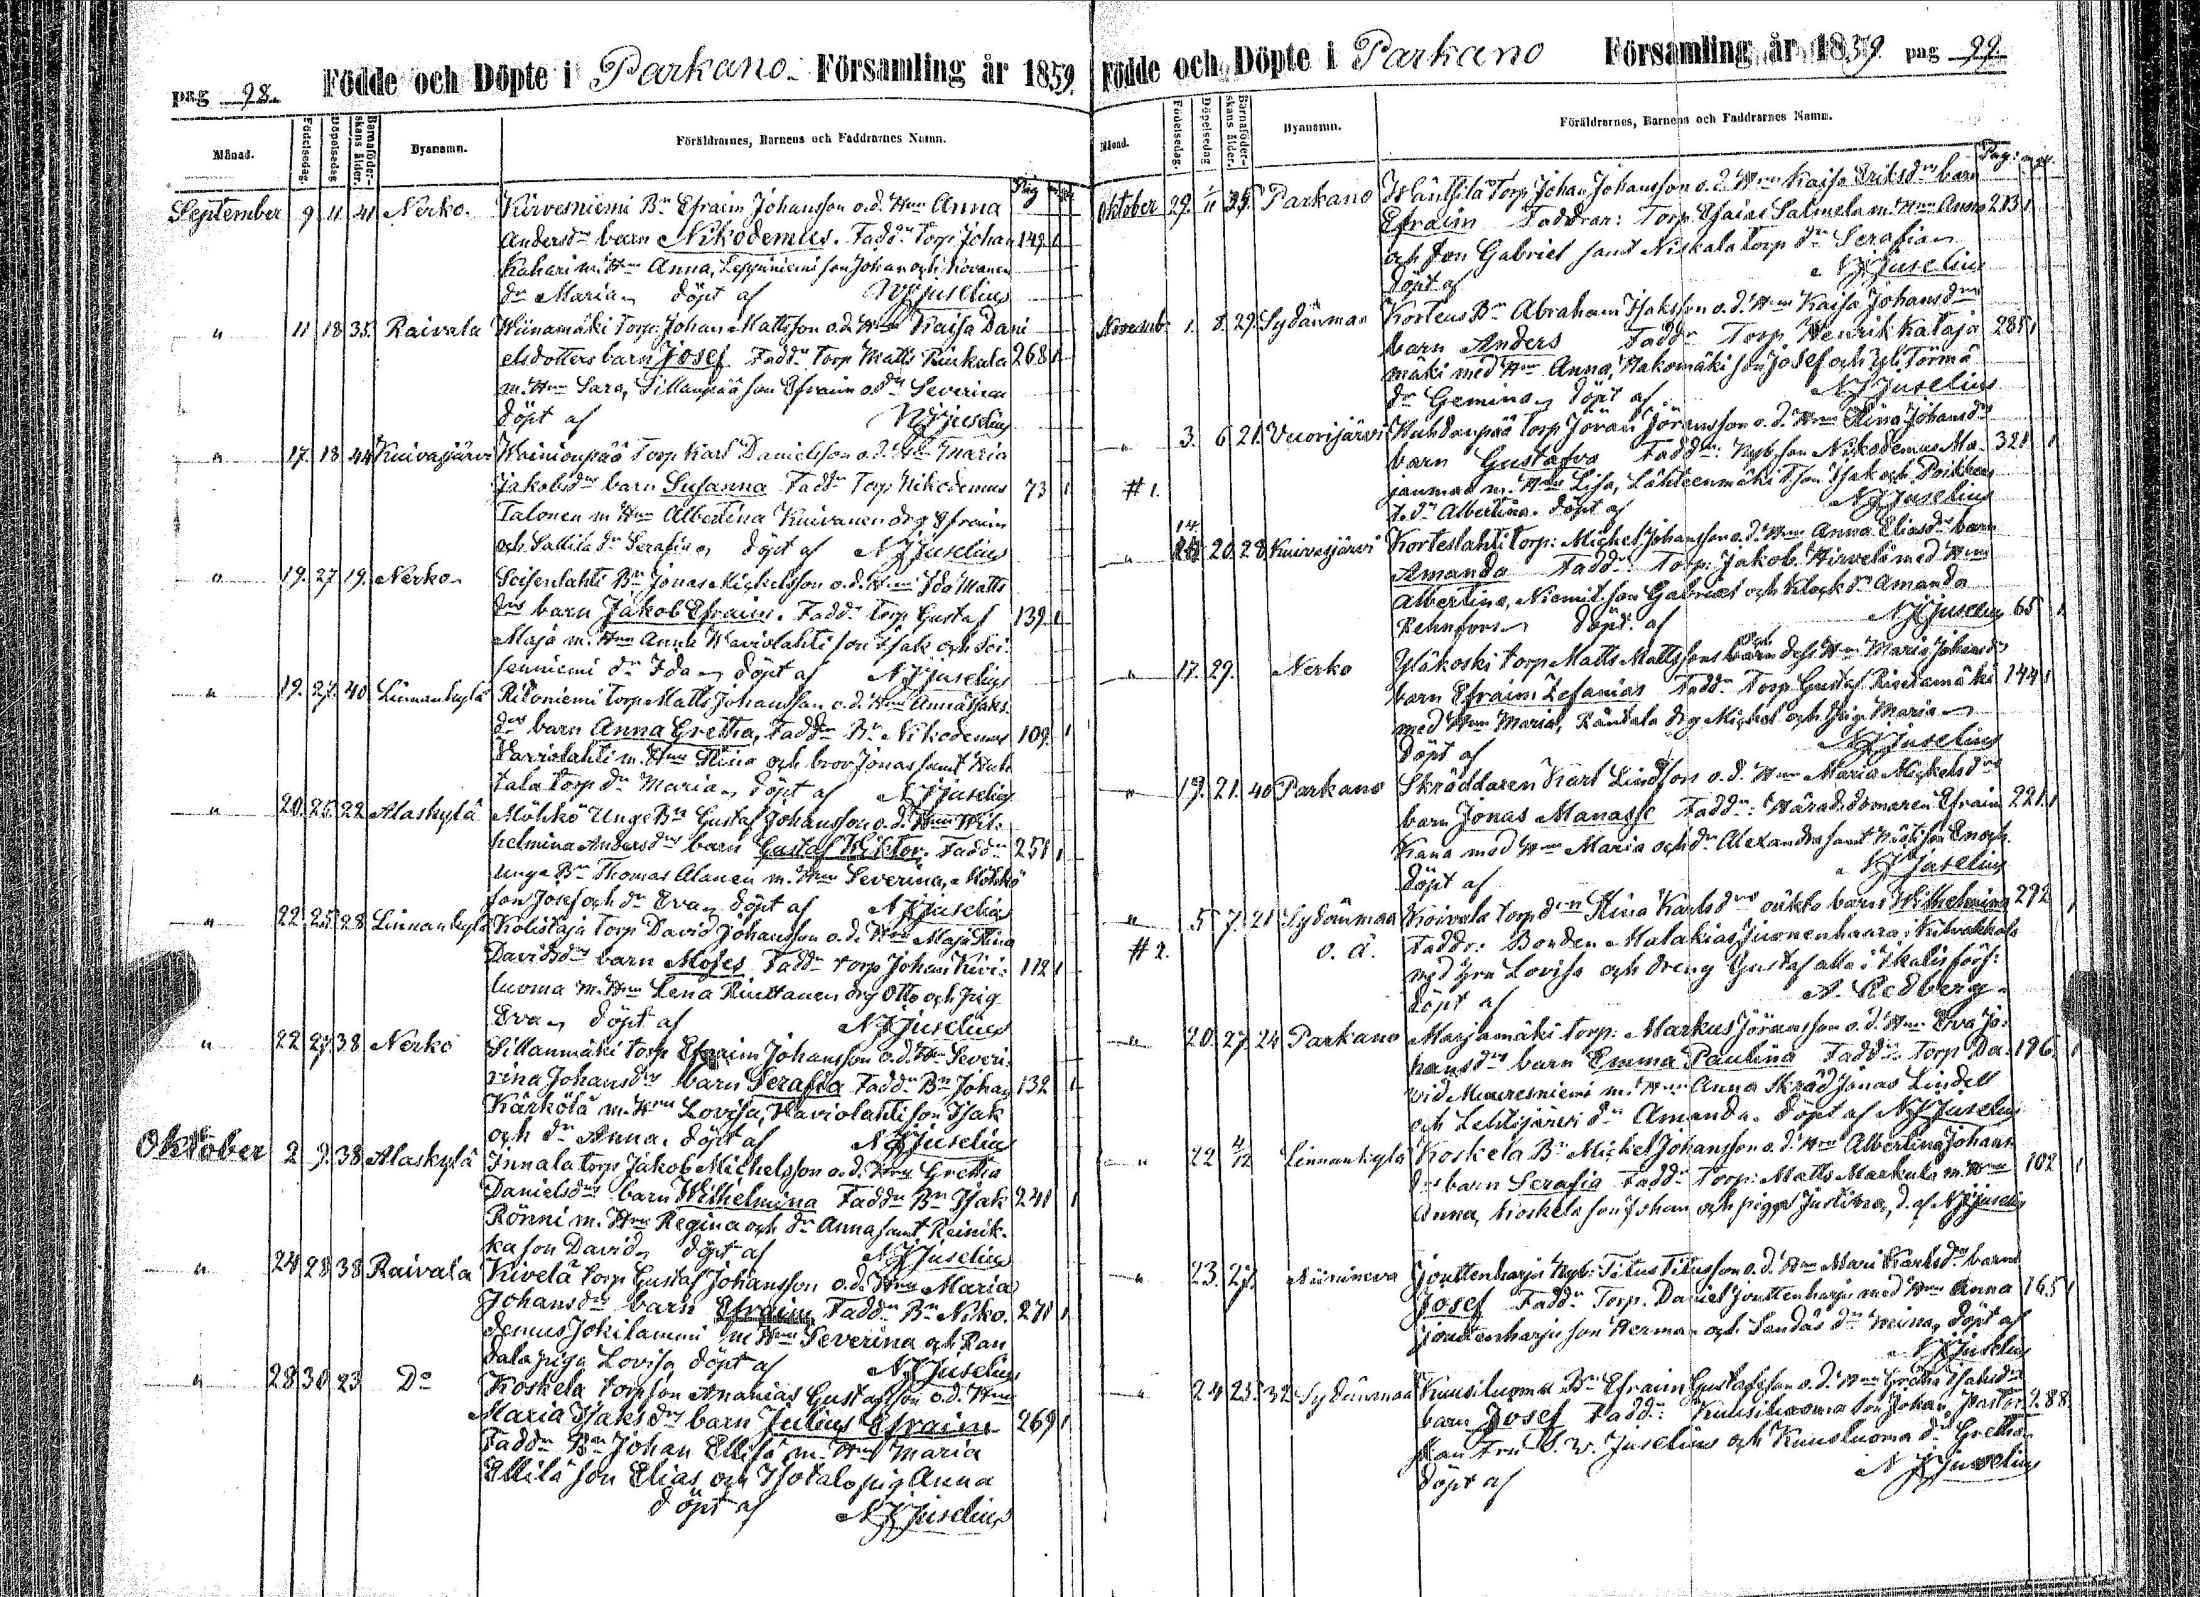 pag 98. Födde och Döpte i Parkano. Församling år 1859.
Månad. Födelsedag. Döpelsedag Barnaföder-skans ålder. Byanamn. Föräldrarnes, Barnens och Faddrarnes Namn. Pag
September 9 11 41 Nerko. Kirvesniemi Bn Efraim Johansson o.d. Hru Anna
Andersdrs barn Nikodemus. Faddr Torp Johan 149 1
Kahari m. Hru Anna, Leppäniemi son Johan och Kovanen
dr Maria döpt af NJJuselius
" 11 18 35 Raivala Wiinamäki Torp: Johan Mattsson o.d. Hru Kaisa Dani
elsdotters barn Josef Faddr Torp Matts Rinkala 268 1
m. Hru Sara, Sillanpää son Efraim o dr Severina
döpt af NJJuselius
" 17. 18 44 Kuivasjärvi Wainionpää Torp Karl Danielsson o.d. Hru Maria
Jakobsdrs barn Susanna Faddr Torp Nikodemus 73 1
Talonen m Hru Albertina Kuivanen drg Efraim
och Sallila dr Serafina döpt af NJJuselius
" 19. 27 19. Nerko Seisenlahti Bn Jonas Michelsson o.d. Hru Ida Matts
drs barn Jakob Efraim. Faddr Torp Gustaf 139 1
Maja m. Hru Anna Waviolahti son Isak och Sei-
senniemi dr Ida döpt af NJJuselius
" 19. 27. 40. Linnankylä Ritoniemi Torp Matts Johansson o.d. Hru Anna Isaks
drs barn Anna Gretha, Faddr Bn Nikodemus 109. 1
m. Hru Stina och bror Jonas samt
tala torp dr Maria döpt af NJJuselius
" 20. 25. 22 Alaskylä Möhkö Unge Bn Gustaf Johansson o.d. Hru Wil-
helmina Andersdrs barn Gustaf Wiktor. Faddr 251 1
unge Bn Thomas Alanen m. Hru Severina, Möhkö
son Josef och dr Eva döpt af NJJuselius
" 22. 25 28 Linnankylä Kolistaja Torp David Johansson o.d. Hru Maja Stina
Davidsdrs barn Moses Faddr torp Johan Kivi- 112 1
luoma m. Hru Lena Rinttanen drg Otto och pig
Eva döpt af NJJuselius
" 22 27 38 Nerko Sillanmäki Torp Efraim Johansson o.d. Hru Severi-
rina Johansdrs barn Serafia Faddr Bn Johan 132 1
Kärkölä m. Hru Lovisa, Waviolahti son Isak
och dr Anna. döpt af NJJuselius
Oktober 2 9. 38 Alaskylä Innala torp Jakob Michelsson o.d. Hru Gretha
Danielsdrs barn Wilhelmina Faddr Bn Isak 241 1
Rönni m. Hru Regina och dr Anna samt Reinik-
ka son David döpt af NJJuselius
" 24 28 38 Raivala Kivelä torp Gustaf Johansson o.d. Hru Maria
Johansdrs barn Efraim Faddr Bn Niko- 271 1
demus Jokilammi m Hru Severina och Ran
dala piga Lovisa, döpt af NJJuselius
" 28 30 23 Do Koskela torpson Ananias Gustafsson o.d. Hru
Maria Isaksdrs barn Julius Efraim 269 1
Faddr Bn Johan Ellilä m. Hru Maria
Ellilä son Elias och Isotalo pig Anna
döpt af NJJuselius
Födde och Döpte i Parkano Församling år 1859. pag 99.
Månad. Födelsedag. Döpelsedag Barnaföder-skans ålder. Byanamn. Föräldrarnes, Barnens och Faddrarnes Namn. Pag:
Oktober 29. 1/11 35. Parkano Torp: Johan Johansson o.d. Hru Kaisa Eriksdrs barn
Efraim Faddrar: Torp: Esaias Salmela m. Hru Anna 213 1
och son Gabriel samt Niskala torp dr Serafia
döpt af NJJuselius
Novemb. 1. 8. 29. Sydänmaa Korteus Bn Abraham Isaksson o.d. Hru Kaisa Johansdrs
barn Anders Faddr Torp Henrik Kataja 285 1
mäki med Hru Anna, Hakomäki son Josef och Törmä
dr Gemina döpt af NJJuselius
" 3. 6 21. Vuorijärvi Torp Jöran Jöransson o.d. Hru Stina Johansdrs
barn Gustafva Faddr: Nyb. son Nikodemus Ma- 321 1
# 1. janmaa m. Hru Lisa, Lähteenmäki T.son Isak och
t.dr Albertina. döpt af NJJuselius
" 14 20. 28 Kuivasjärvi Korteslahti Torp: Michel Johansson o.d. Hru Anna Eliasdrs barn
Amanda Faddr Torp: Jakob Hirvelä med Hru
Albertina, Niemit. son Gabriel och Klock dr Amanda
Rehnfors döpt af NJJuselius 65 1
" 17. 29. Nerko Yläkoski torp Matts Mattssons och dess Hru Maria Johansdrs
barn Efraim Zefanias Faddr Torp Gustaf 144 1
med Hru Maria, Rändala drg Michel och pig: Maria
döpt af NJJuselius
" 19. 21. 40 Parkano Skräddaren Karl Lindfors o.d. Hru Maria Mickelsdrs
barn Jonas Manasse Faddr: Häradsdomaren Efraim 221. 1
Kana med Hru Maria och dr Alexandra samt son Enoch.
döpt af NJJuselius
" 5 7. 21 Sydänmaa Koivula torp drn Stina Karlsdrs oäkta barn Wilhelmina 292 1
# 2. o. ä. Faddr: Bonden Malakias Juonenhaara
med hru Lovisa och dreng Gustaf alla i Ikalis förs:
döpt af A. Redberg.
" 20. 27. 24 Parkano Marjamäki torp: Markus Jöransson o.d. Hru Eva Jo-
hansdrs barn Emma Paulina Faddr: Torp Da- 196 1
vid m. Hru Anna Skräd Jonas Lindell
och Lehtijärvi dr Amanda. döpt af NJJuselius
" 22 4/12 Linnankylä Koskela Bn Michel Johansson o.d. Hru Albertina Johans
drs barn Serafia Faddr Torp: Matts Markula m. Hru 102 1
Anna, Koskela son Johan och piga Justina, d. af NJJuselius
" 23. 27. Niiniineva Jouttenharju Nyb: Titus Titusson o.d. Hru Mari Karlsdrs barn
Josef Faddr Torp. Daniel Jouttenharju med Hru Anna 165 1
Jouttenharju son Herman och Sandås dr Meina, döpt af
NJJuselius
" 24 25. 32 Sydänmaa Kuusiluoma Bn Efraim Gustafsson o.d. Hru Gretha Isaksdrs
barn Josef Faddr: Kuusiluoma son Johan, Pastor 288
skan Fru S. W. Juselius och Kuusiluoma dr Gretha
döpt af NJJuselius